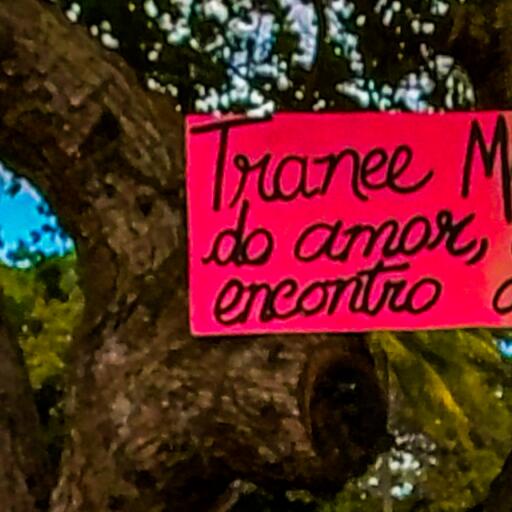 Tranee M
do amor,
encontro